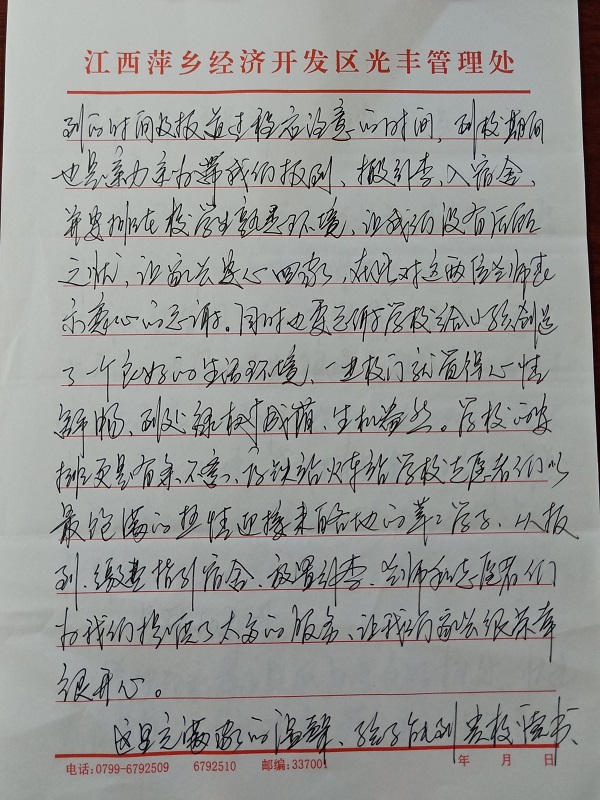 江西萍乡经济开发区光丰管理处
到的时间及报道过程应注意的时间，到校期间
也是亲力亲为带我们报到、搬行李、入宿舍、
并安排在校学生熟悉环境，让我们没有后顾
之忧，让家长安心回家，在此对这两位老师表
示衷心的感谢。同时也要感谢学校给小孩创造
了一个良好的生活环境，一进校门就觉得心情
舒畅、到处绿树成荫、生机盎然。学校的安
排更是有条不紊，高铁站火车站学校志愿者们以
最饱满的热情迎接来自各地的莘莘学子，从报
到、缴费指引宿舍、放置行李、老师和志愿者们
为我们提供了太多的服务、让我们家长很荣幸
很开心。
这里充满家的温馨、孩子能到贵校读书、
电话:0799-6792509 6792510 邮编:337001 年 月 日